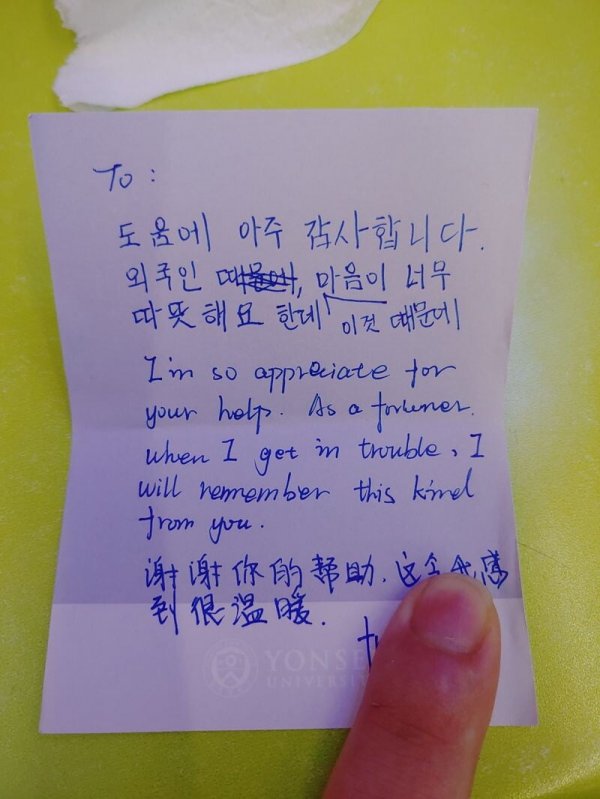 To :
도움에 아주 감사합니다.
외국인 , 마음이 너무
따뜻해요 한데 이것 때문에
I'm so appreciate for
your help. As a foriuner.
when I get in trouble, I
will remember this kind
from you.
谢谢你的帮助. 这令我感
到很温暖.
YONSE
UNIVERSIT